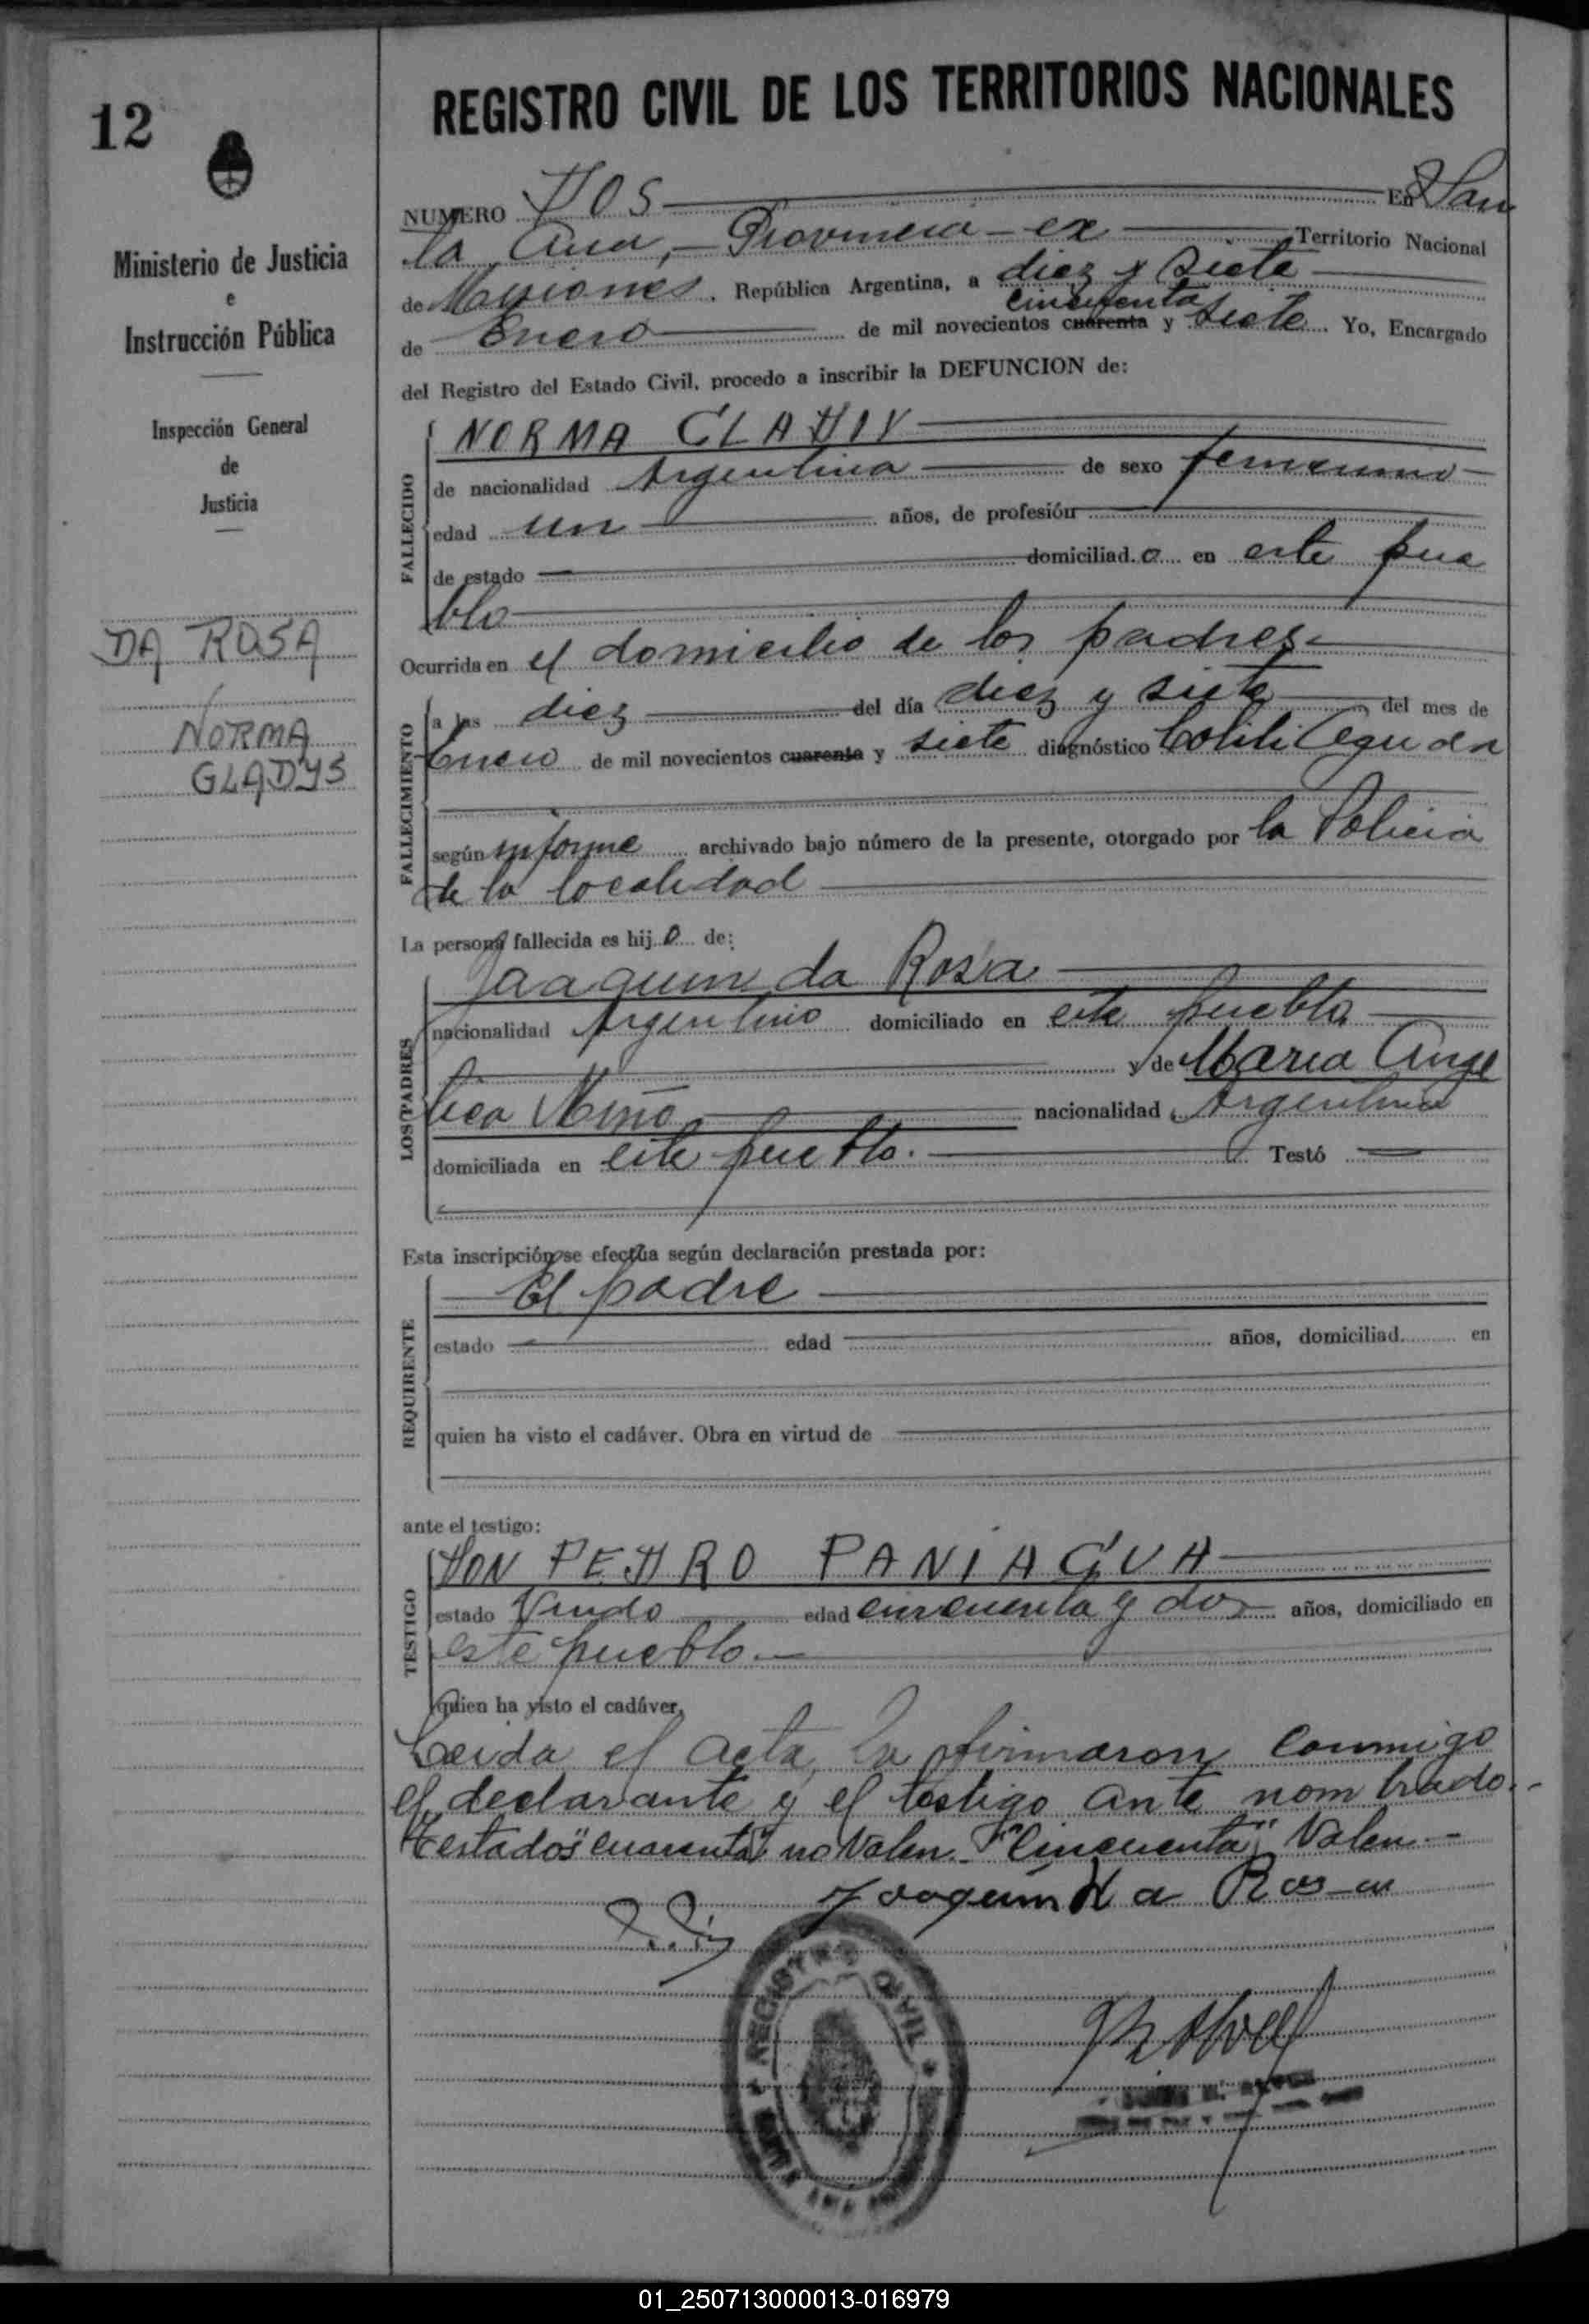 12
REGISTRO CIVIL DE LOS TERRITORIOS NACIONALES
Ministerio de Justicia
e
Instrucción Pública
Inspección General
de
Justicia
DA ROSA
NORMA
GLADYS
NUMERO DOS En San
ta Ana, - Provincia - ex Territorio Nacional
de Misiones, República Argentina, a diez y siete
cincuenta
de Enero de mil novecientos cuarenta y siete. Yo, Encargado
del Registro del Estado Civil, procedo a inscribir la DEFUNCION de:
FALLECIDO
NORMA GLADIV
de nacionalidad Argentina de sexo femenino
edad un años, de profesión
de estado domiciliad.a en este pue
blo
Ocurrida en el domicilio de los padres
FALLECIMIENTO
a las diez del día diez y siete del mes de
Enero de mil novecientos cuarenta y siete diagnóstico
según informe archivado bajo número de la presente, otorgado por la Policia
de la localidad
La persona fallecida es hij.a de:
LOS PADRES
Joaquim da Rosa
nacionalidad Argentino domiciliado en este pueblo
y de Maria Ange
lica Miño nacionalidad Argentina
domiciliada en este pueblo. Testó
Esta inscripción se efectúa según declaración prestada por:
REQUIRENTE
El padre
estado edad años, domiciliad en
quien ha visto el cadáver. Obra en virtud de
ante el testigo:
TESTIGO
DON PEDRO PANIAGUA
estado Viudo edad cincuenta y dos años, domiciliado en
este pueblo.-
quien ha visto el cadáver,
Leida el acta, la firmaron conmigo
el declarante y el testigo ante nombrado.-
Testados "cuarenta" no Valen. "Cincuenta" Valen.-
Joaquim Da Rosa
REGISTRO CIVIL
01_250713000013-016979